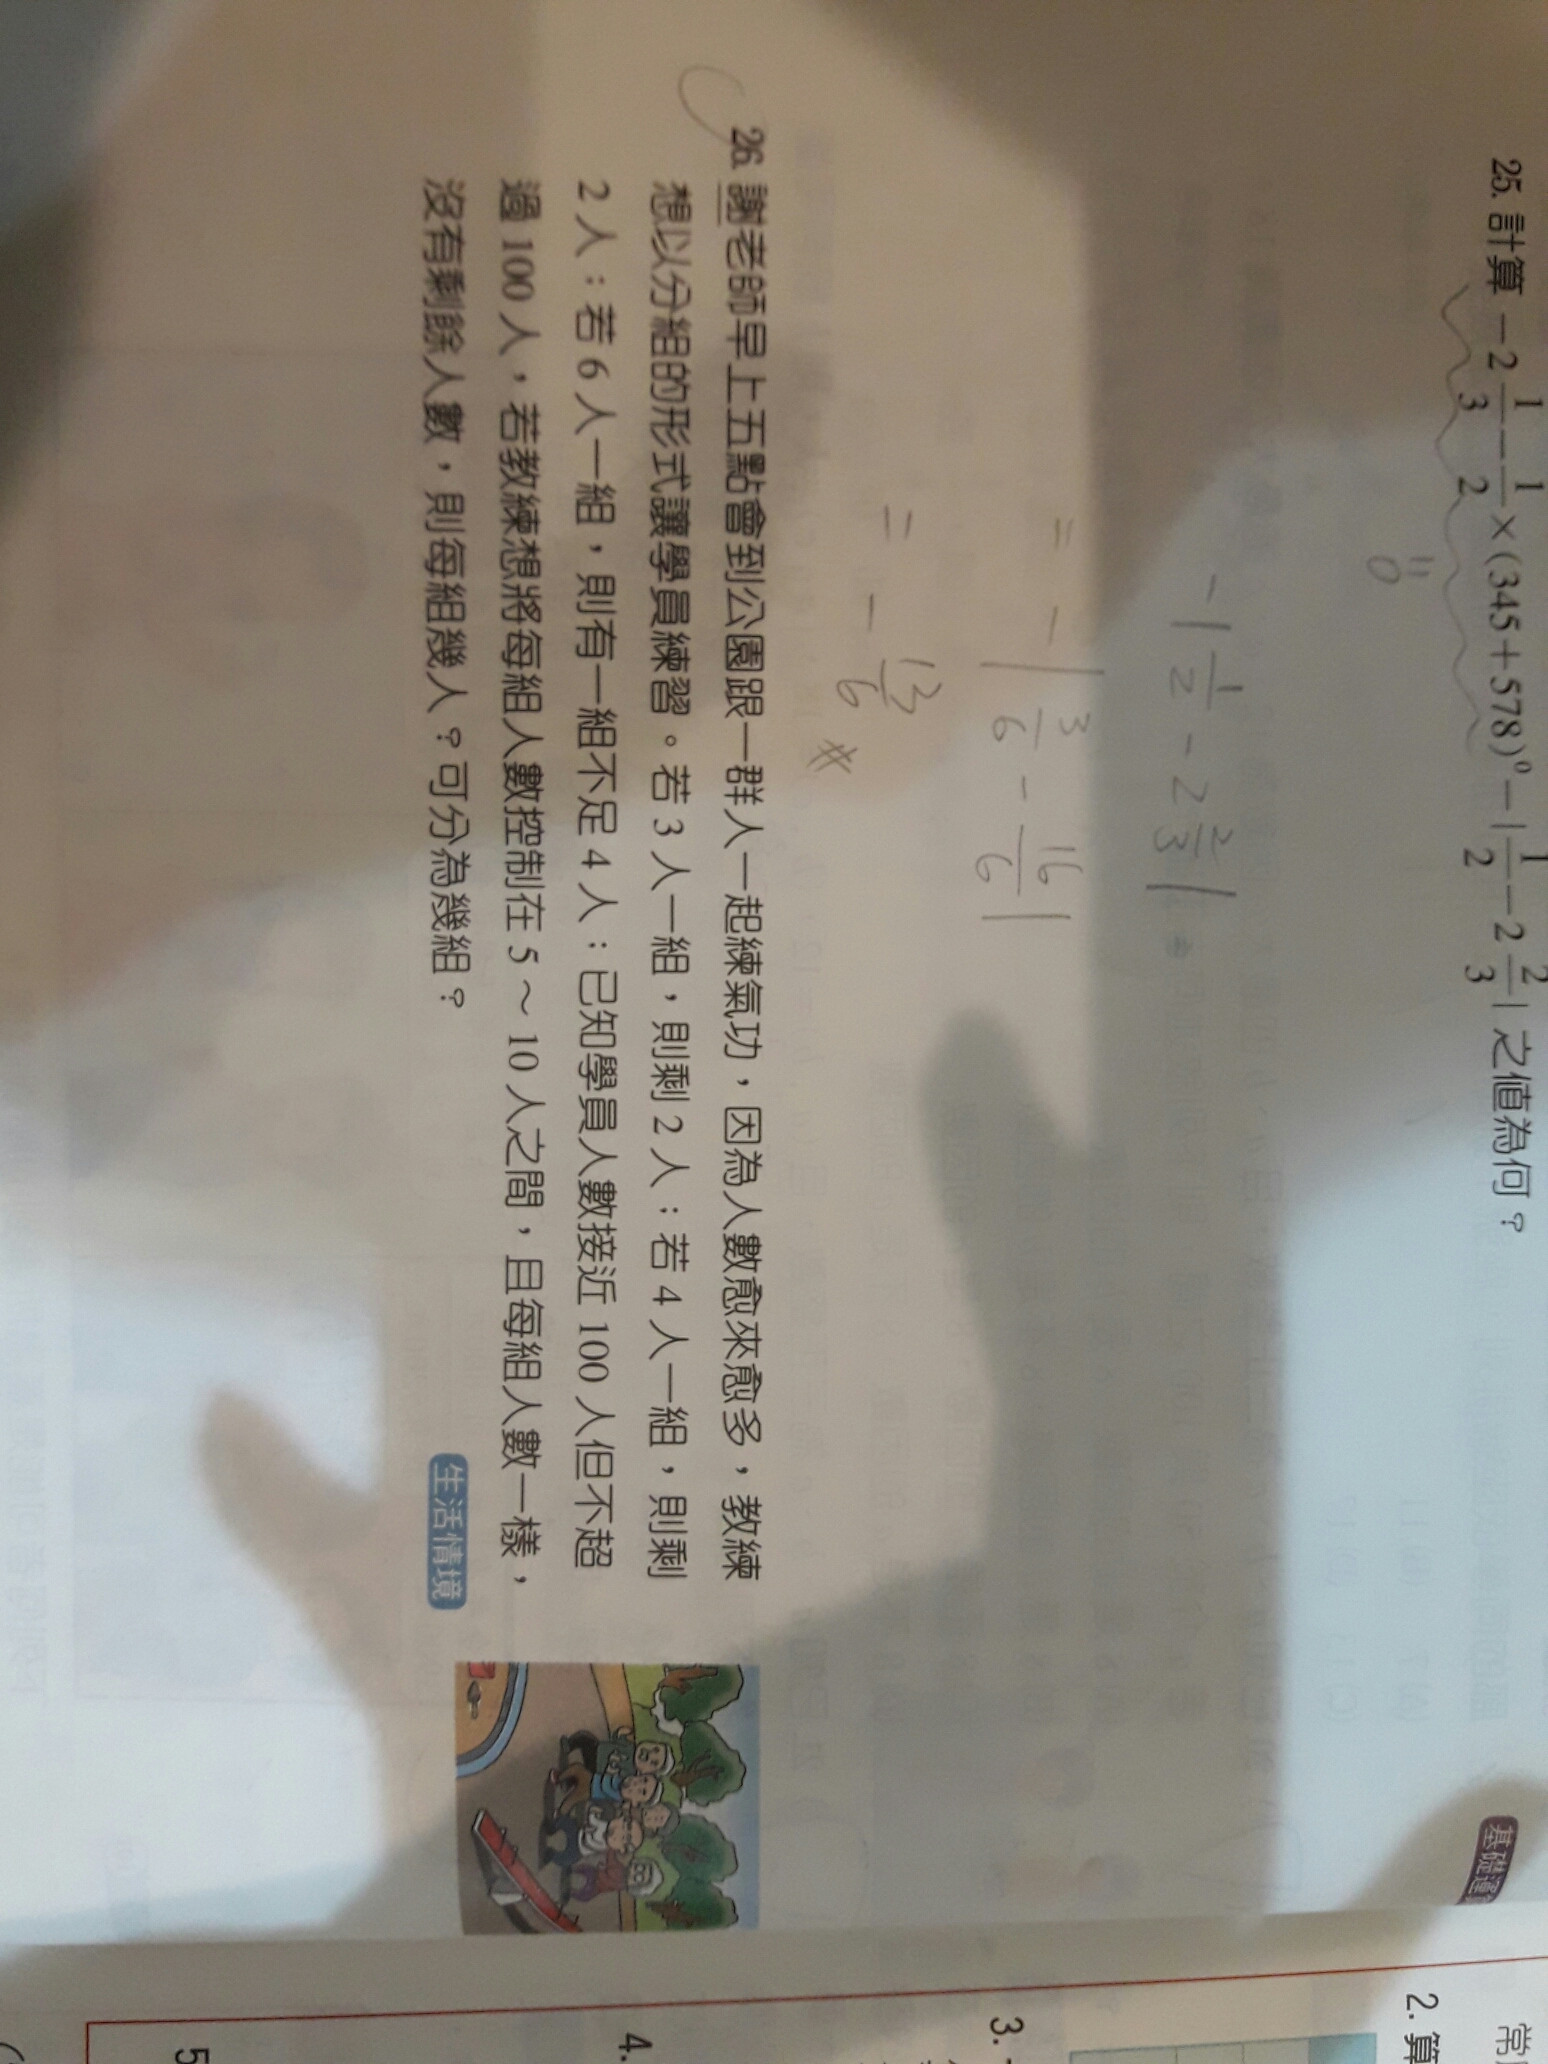 25. 計算 −2 1/3 − 1/2 ×(345+578)⁰ − | 1/2 − 2 2/3 | 之值為何？
基礎運
"0
− | 1/2 − 2 2/3 | =
= − | 3/6 − 16/6 |
= − 13/6 #
26. 謝老師早上五點會到公園跟一群人一起練氣功，因為人數愈來愈多，教練
想以分組的形式讓學員練習。若 3 人一組，則剩 2 人；若 4 人一組，則剩
2 人；若 6 人一組，則有一組不足 4 人；已知學員人數接近 100 人但不超
過 100 人，若教練想將每組人數控制在 5 ～ 10 人之間，且每組人數一樣，
沒有剩餘人數，則每組幾人？可分為幾組？
生活情境
常
2. 算
3.
4.
5